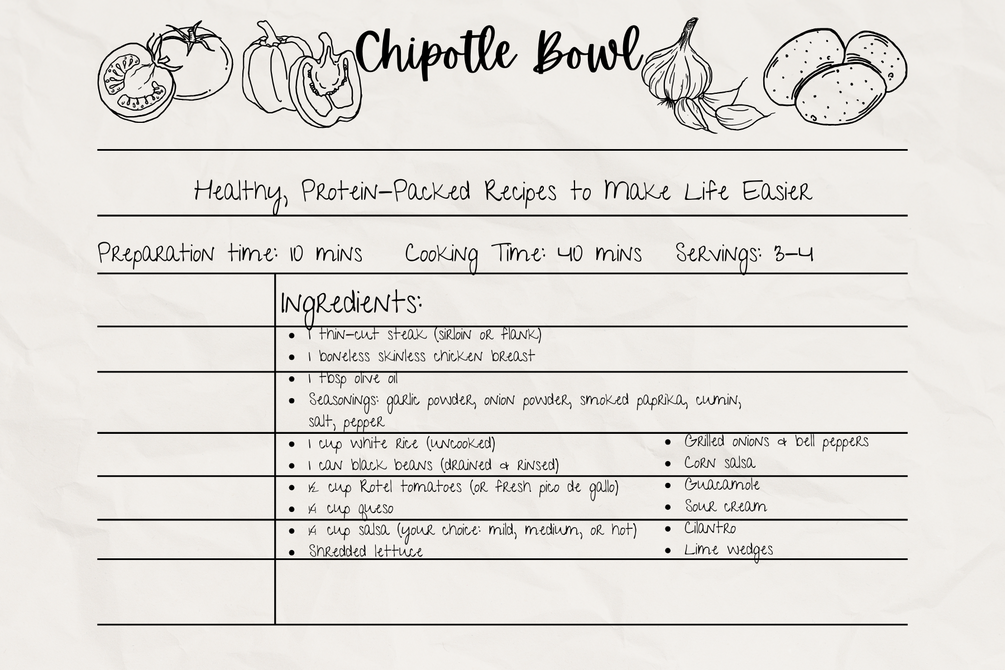 Chipotle Bowl
Healthy, Protein-Packed Recipes to Make Life Easier
Preparation time: 10 mins Cooking Time: 40 mins Servings: 3-4
Ingredients:
• 1 thin-cut steak (sirloin or flank)
• 1 boneless skinless chicken breast
• 1 tbsp olive oil
• Seasonings: garlic powder, onion powder, smoked paprika, cumin,
salt, pepper
• 1 cup white rice (uncooked)
• 1 can black beans (drained & rinsed)
• ½ cup Rotel tomatoes (or fresh pico de gallo)
• ¼ cup queso
• ¼ cup salsa (your choice: mild, medium, or hot)
• Shredded lettuce
• Grilled onions & bell peppers
• Corn salsa
• Guacamole
• Sour cream
• Cilantro
• Lime wedges